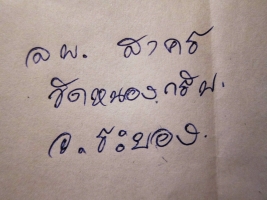 ลพ. สาคร
วัดหนองกรับ.
จ. ระยอง.